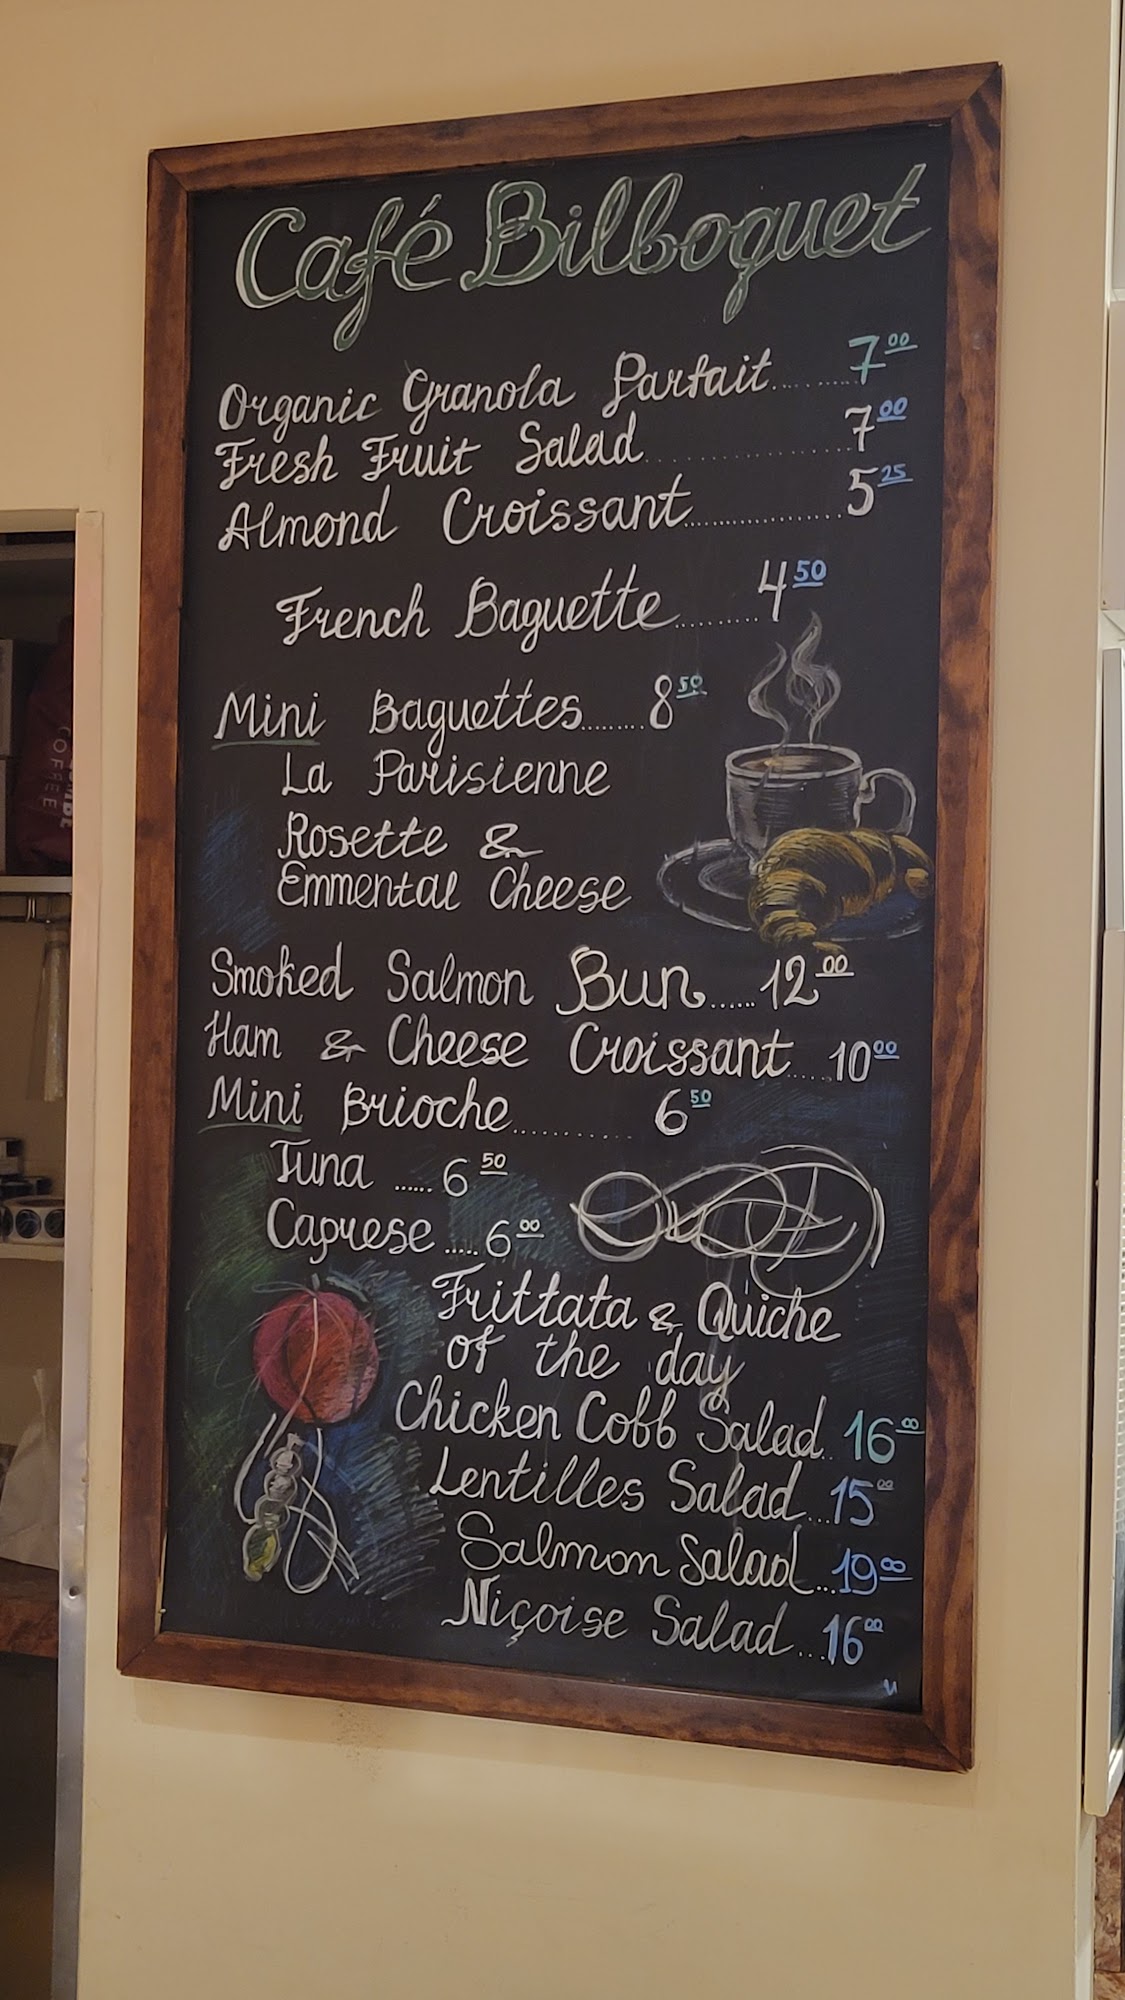 Café Bilboquet
Organic Granola Parfait......... 7 00
Fresh Fruit Salad.............. 7 00
Almond Croissant............... 5 25
French Baguette......... 4 50
Mini Baguettes........ 8 50
La Parisienne
Rosette &
Emmental Cheese
Smoked Salmon Bun...... 12 00
Ham & Cheese Croissant..... 10 00
Mini Brioche........... 6 50
Tuna ...... 6 50
Caprese ..... 6 00
Frittata & Quiche
of the day
Chicken Cobb Salad.. 16 00
Lentilles Salad... 15 00
Salmon Salad... 19 00
Niçoise Salad... 16 00
COFFEE